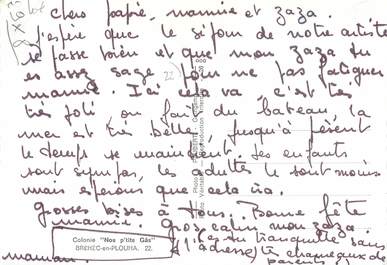 chers papie, mamie et zaza.
j'espère que le séjour de notre artiste
se passe bien et que mon zaza tu
es assez sage pour ne pas fatiguer
mamie. Ici cela va c'est très
très joli, on fait du bateau, la
mer est très belle, jusqu'à présent
le temps se maintient, les enfants
sont sympas, les adultes le sont moins
mais espérons que cela ira.
grosses bises à tous. Bonne fête
mamie. Gros calin mon zaza
Colonie "Nos p'tits Gâs"
BREHEC-en-PLOUHA. 22.
tranquille sans
adresse) chapeaux de
maman.
22